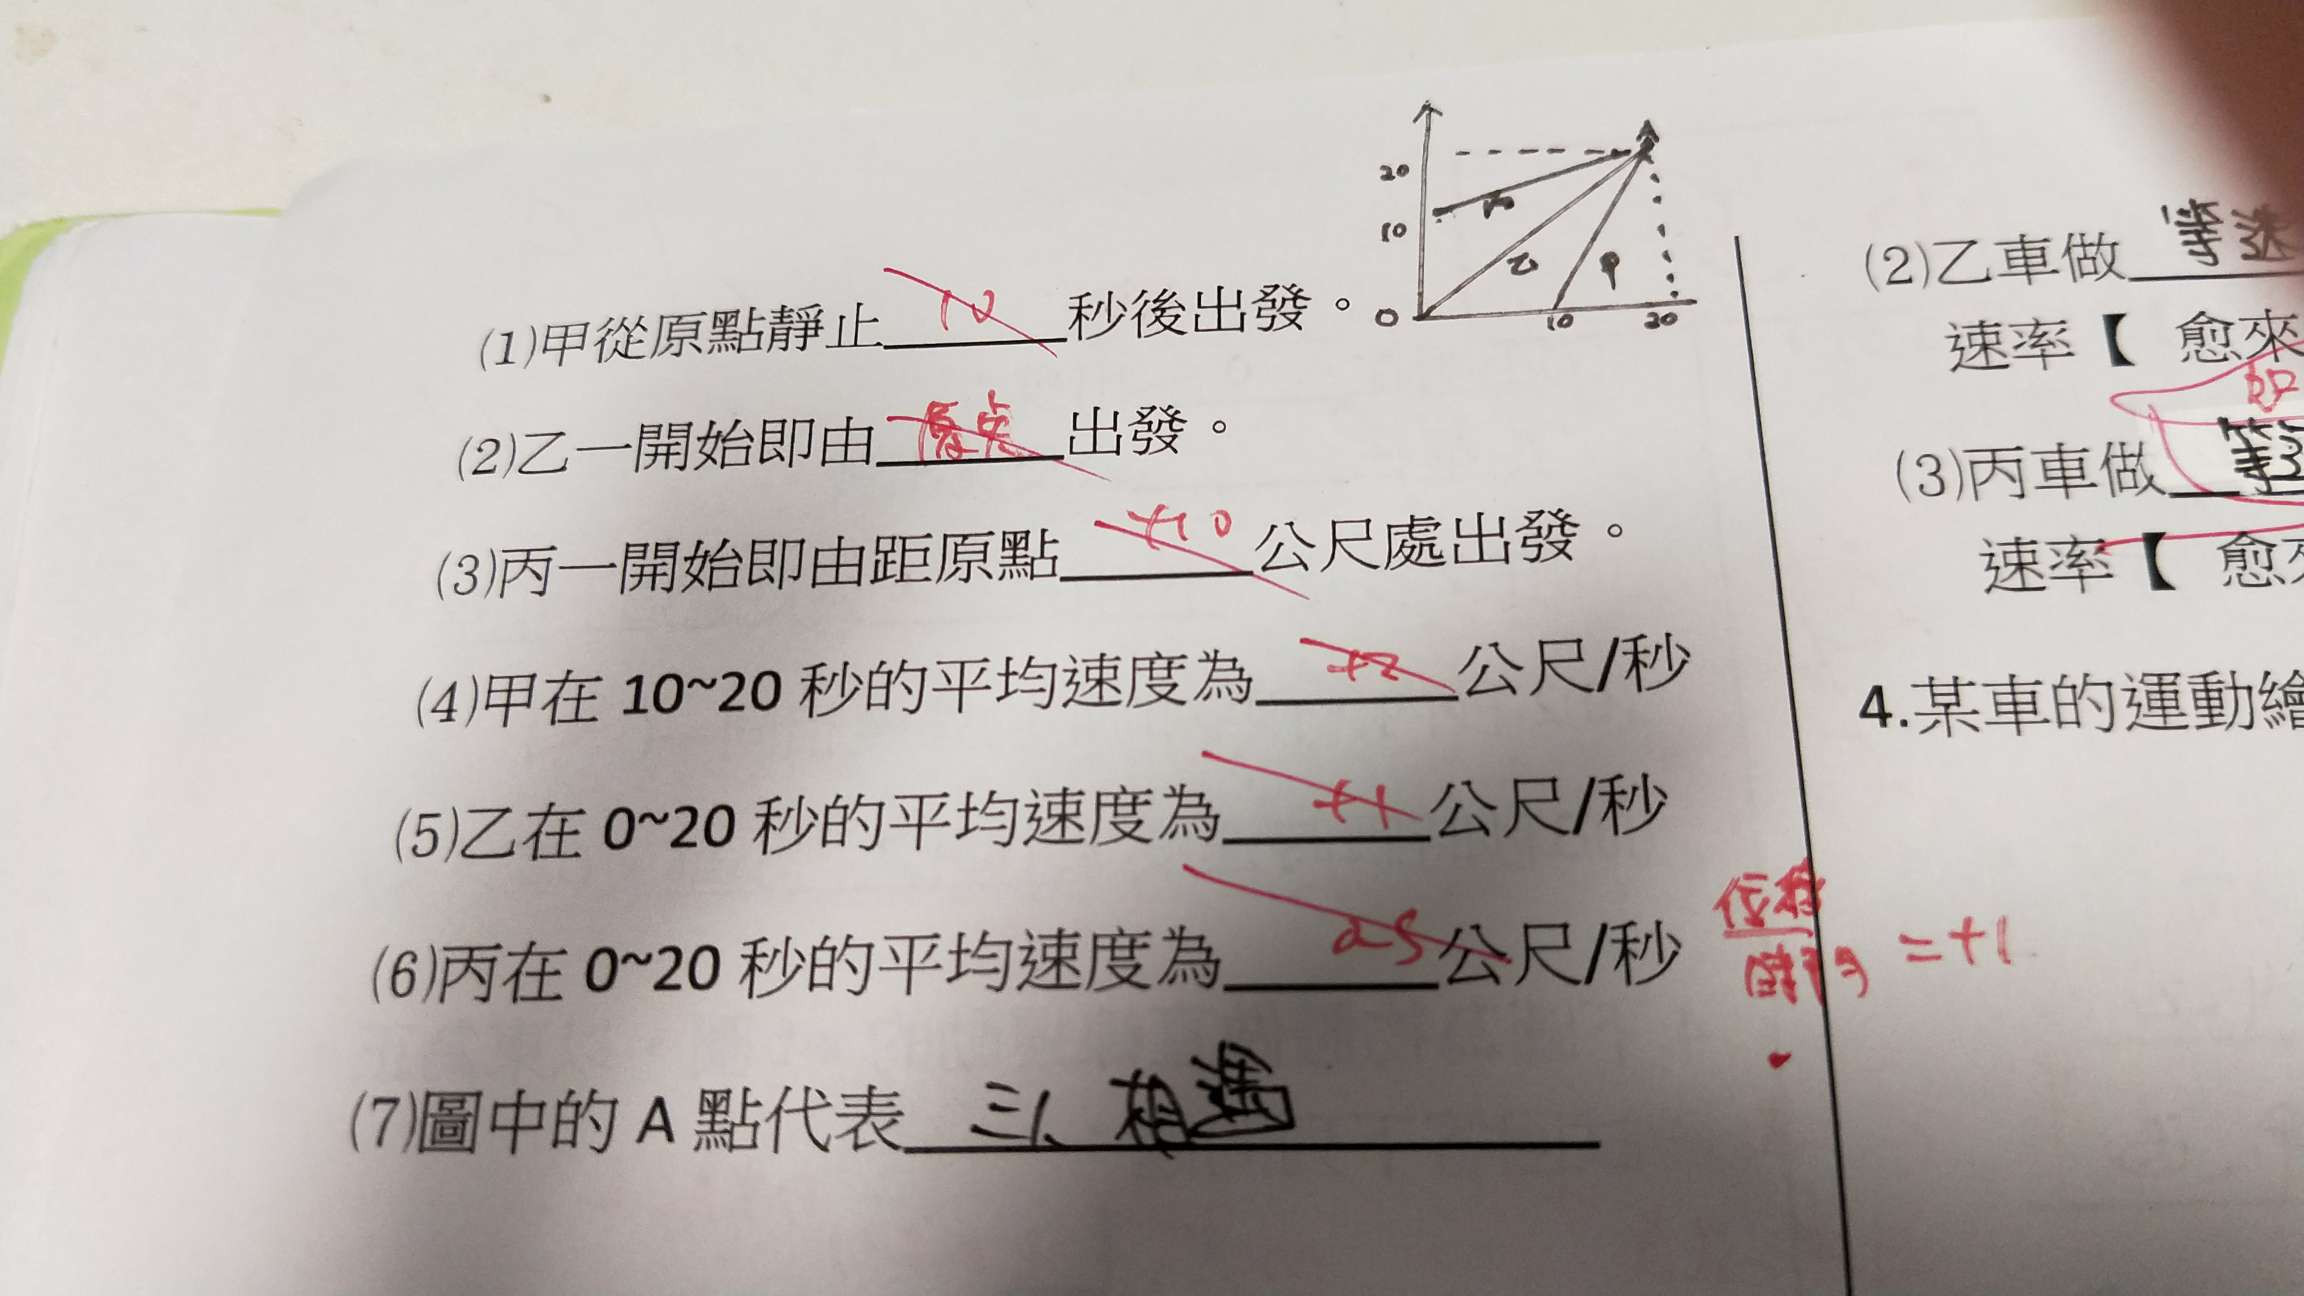 20
10
丙
乙
甲
0
10
20
(1)甲從原點靜止 10 秒後出發。
(2)乙一開始即由 原點 出發。
(3)丙一開始即由距原點 +10 公尺處出發。
(4)甲在 10~20 秒的平均速度為 +2 公尺/秒
(5)乙在 0~20 秒的平均速度為 +1 公尺/秒
(6)丙在 0~20 秒的平均速度為 公尺/秒
(7)圖中的 A 點代表 三人相遇
位移
時間
=+1
(2)乙車做 等速
速率【 愈來
(3)丙車做
速率【 愈
4.某車的運動繪